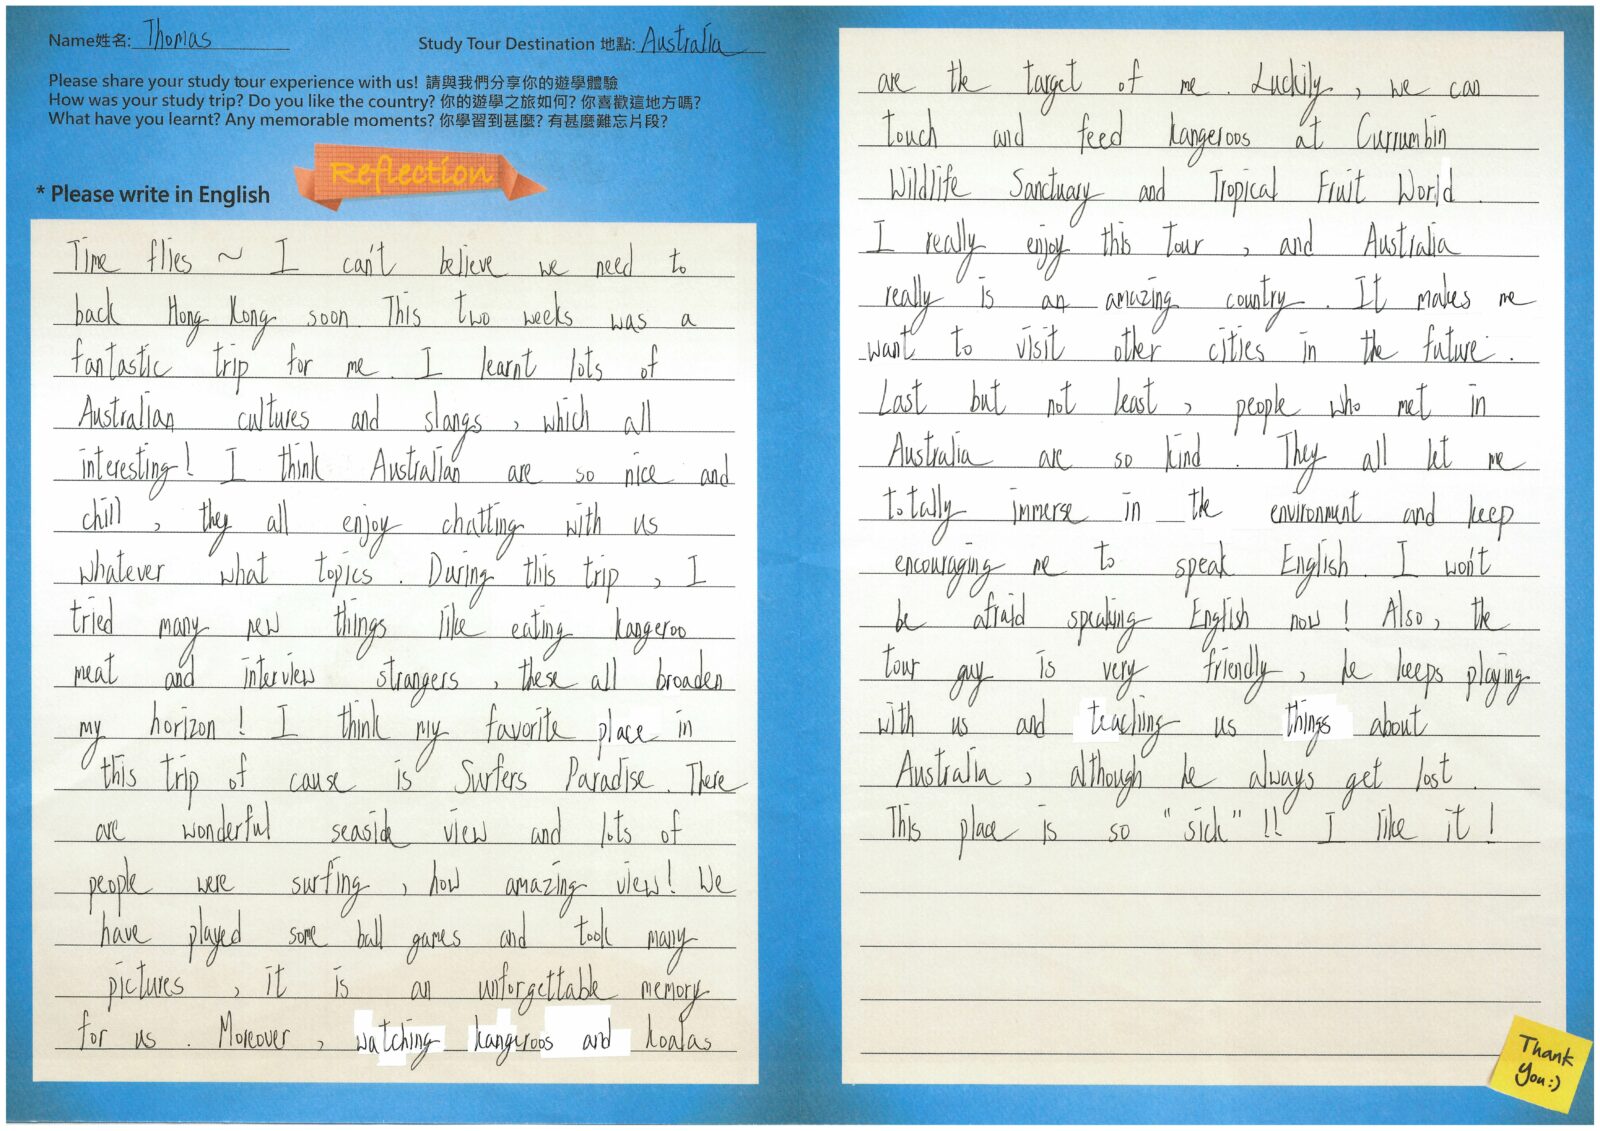 Name姓名: Thomas
Study Tour Destination 地點: Australia
Please share your study tour experience with us! 請與我們分享你的遊學體驗
How was your study trip? Do you like the country? 你的遊學之旅如何? 你喜歡這地方嗎?
What have you learnt? Any memorable moments? 你學習到甚麼? 有甚麼難忘片段?
Reflection
* Please write in English
Time flies ~ I can't believe we need to
back Hong Kong soon. This two weeks was a
fantastic trip for me. I learnt lots of
Australian cultures and slangs, which all
interesting! I think Australian are so nice and
chill, they all enjoy chatting with us
whatever what topics. During this trip, I
tried many new things like eating kangeroo
meat and interview strangers, these all broaden
my horizon! I think my favorite place in
this trip of cause is Surfers Paradise. There
are wonderful seaside view and lots of
people were surfing, how amazing view! We
have played some ball games and took many
pictures, it is an unforgettable memory
for us. Moreover, watching kangeroos and koalas
are the target of me. Luckily, we can
touch and feed kangeroos at Currumbin
Wildlife Sanctuary and Tropical Fruit World.
I really enjoy this tour, and Australia
really is an amazing country. It makes me
want to visit other cities in the future.
Last but not least, people who met in
Australia are so kind. They all let me
totally immerse in the environment and keep
encouraging me to speak English. I won't
be afraid speaking English now! Also, the
tour guy is very friendly, he keeps playing
with us and teaching us things about
Australia, although he always get lost.
This place is so "sick"!! I like it!
Thank
You:)